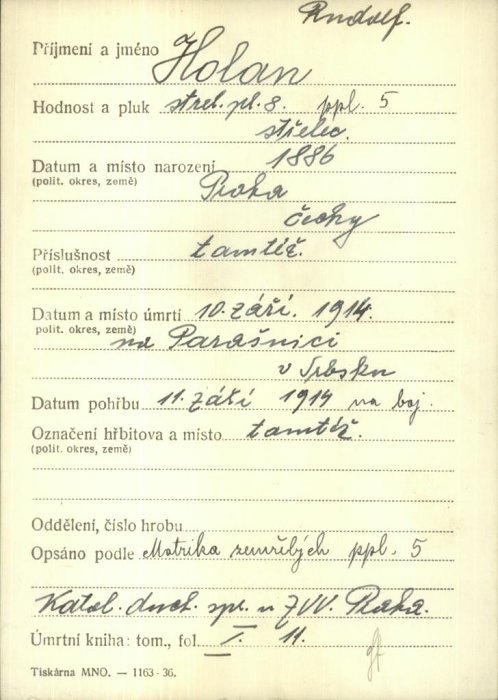 Rudolf.
Příjmení a jméno Holan
Hodnost a pluk střel. pl. 8. ppl. 5
střelec.
Datum a místo narození 1886
(polit. okres, země)
Praha
Čechy
Příslušnost tamtéž.
(polit. okres, země)
Datum a místo úmrtí 10. září. 1914.
polit. okres, země)
na Parašnici
v Srbsku
Datum pohřbu 11. září 1914 na boj.
Označení hřbitova a místo tamtéž.
(polit. okres, země)
Oddělení, číslo hrobu
Opsáno podle Matrika zemřelých ppl. 5
Katol. duch. spr. u ZVV. Praha.
Úmrtní kniha: tom., fol. I. 11.
Tiskárna MNO. — 1163-36.